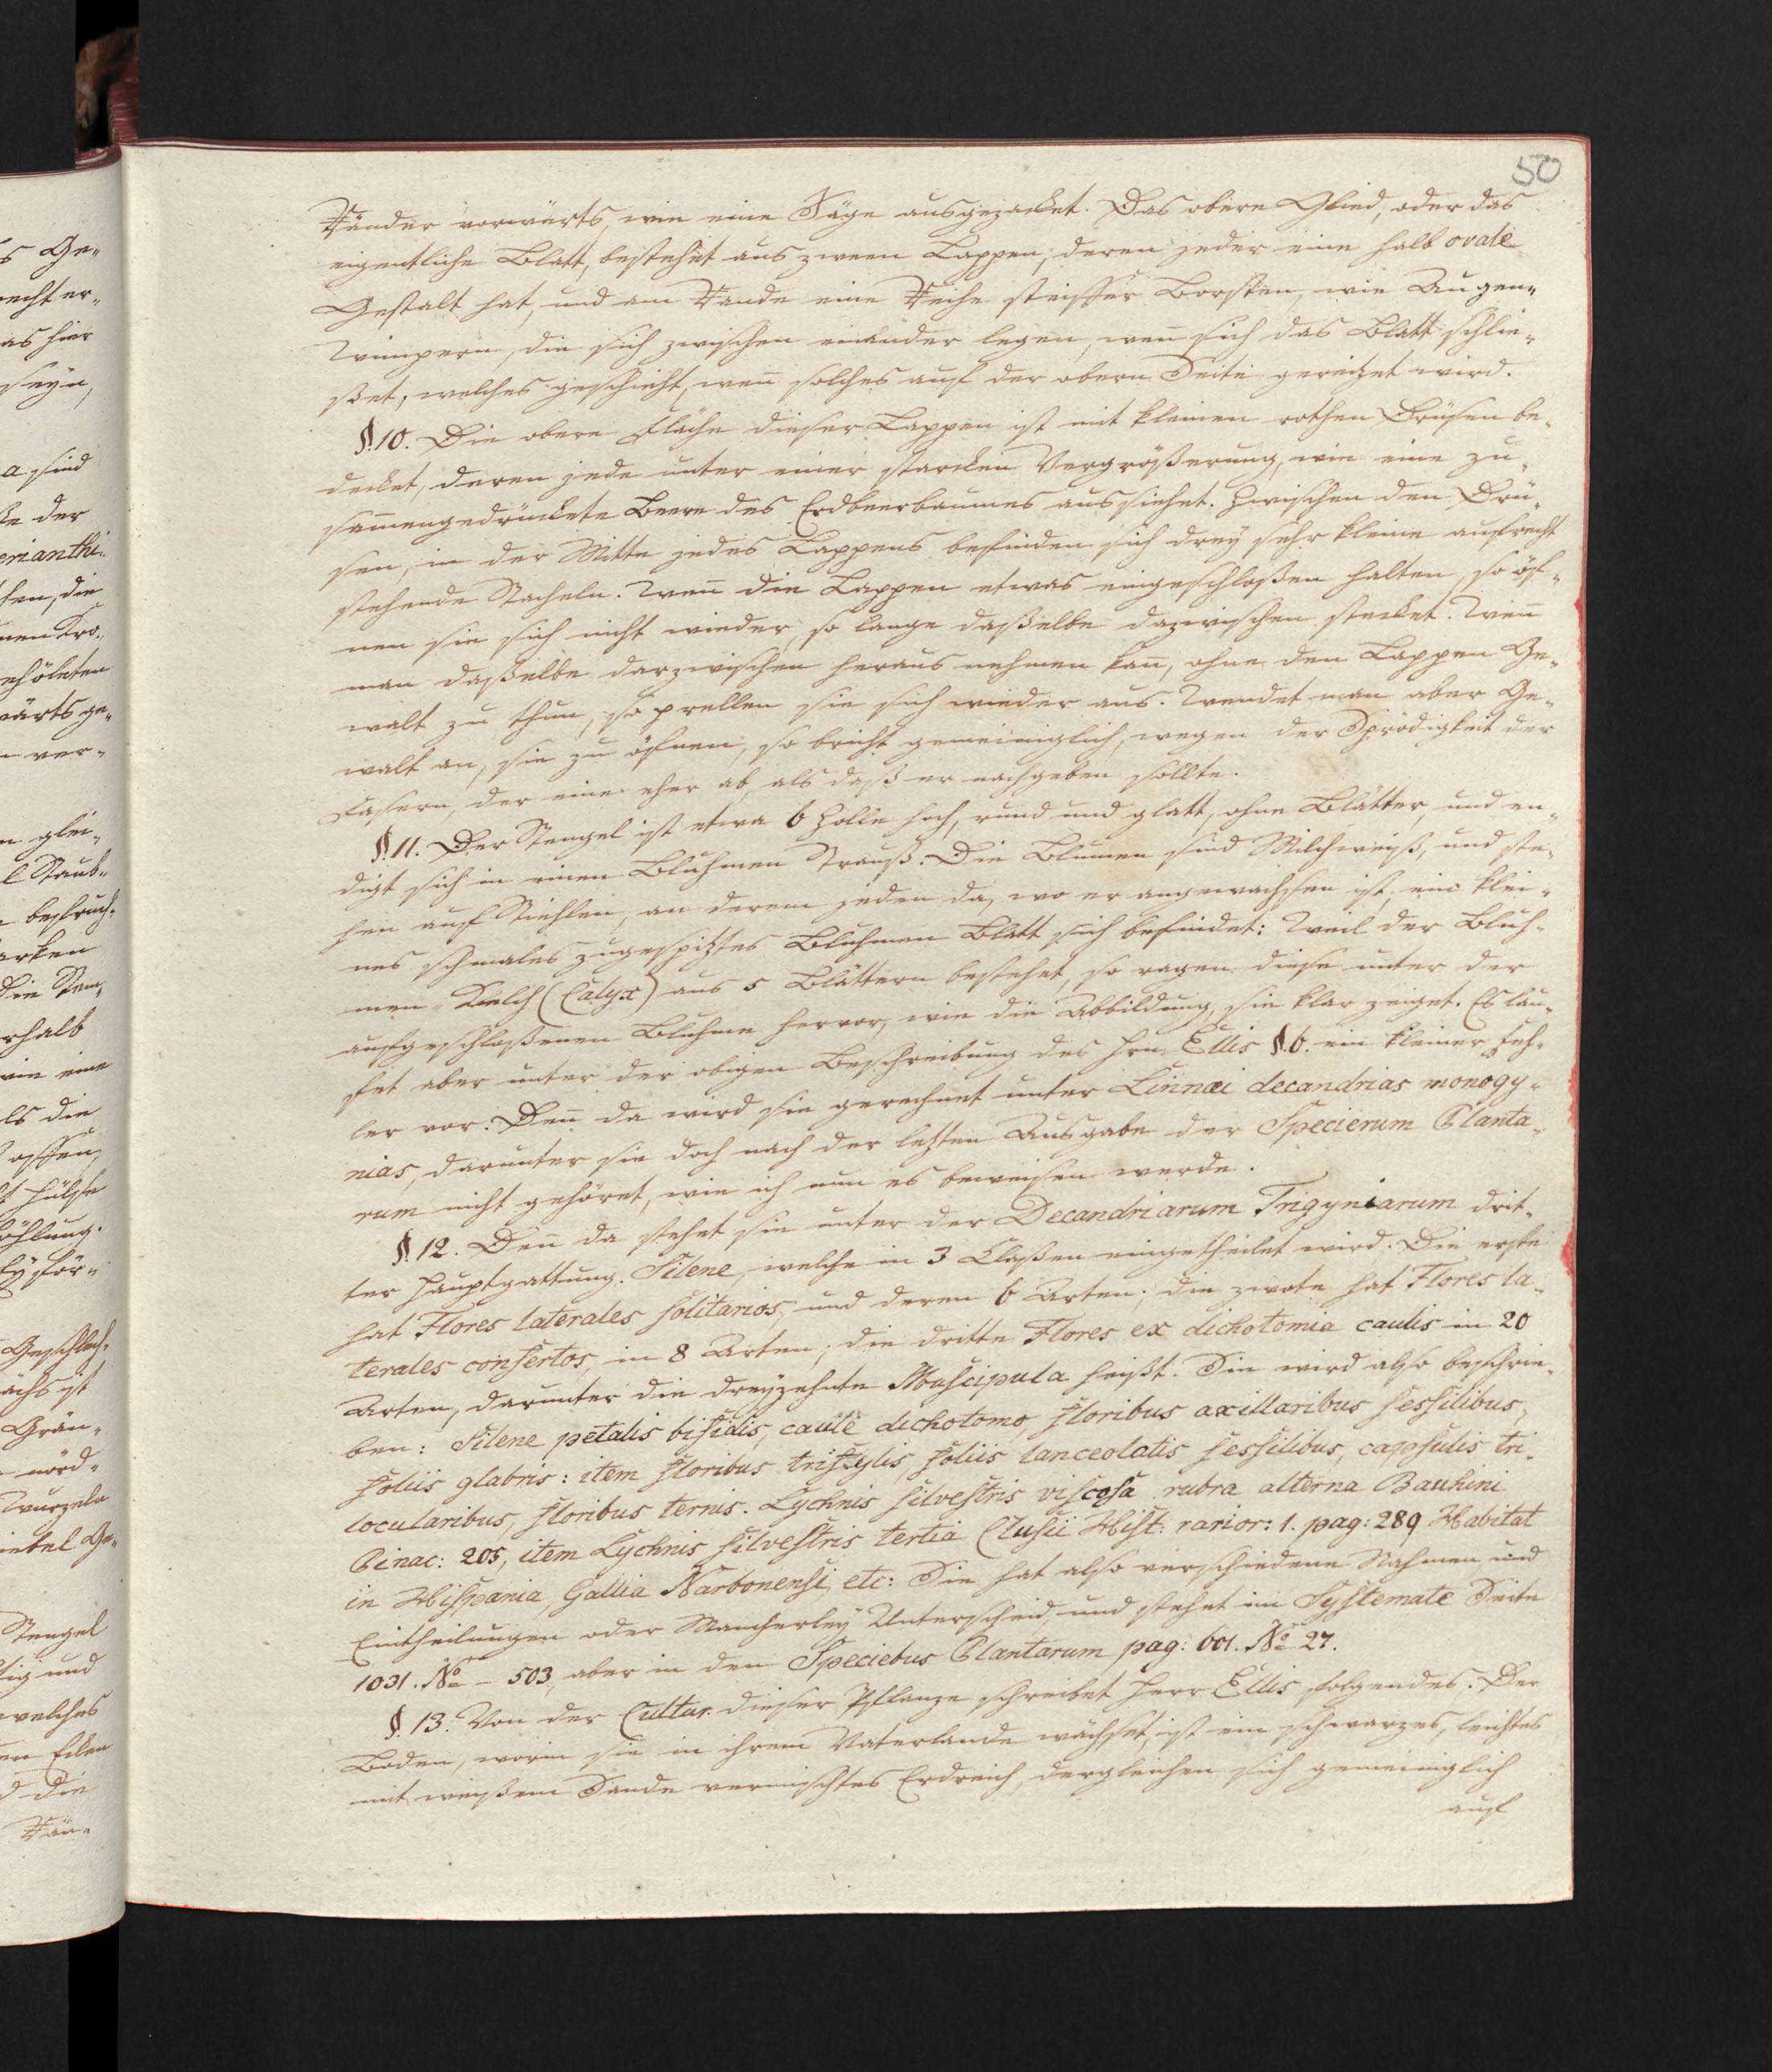 50
Ränder vorwärts, wie eine Säge ausgezacket. Das obere Glied, oder das
eigentliche Blatt, bestehet aus zween Lappen, deren jeder eine halb ovale
Gestalt hat, und am Rande eine Reihe steiffer Borsten, wie Augen„
Wimpern, die sich zwischen einander legen, weñ sich das Blatt schlie„
ßet, welches geschieht, weñ solches auf der obern Seite gereitzet wird.
§. 10. Die obere Fläche dieser Lappen ist mit kleinen rothen Drüsen be„
decket, deren jede unter einer starcken Vergrößerung, wie eine zu„
sam̃engedrückete Beere des Erdbeerbaumes aussiehet. Zwischen den Drü„
sen, in der Mitte jedes Lappens befinden sich drey sehr kleine aufrecht
stehende Stacheln. Weñ die Lappen etwas eingeschloßen halten, so öf„
nen sie sich nicht wieder, so lange daßelbe dazwischen stecket. Weñ
man daßelbe darzwischen heraus nehmen kañ, ohne den Lappen Ge„
walt zu thun, so prellen sie sich wieder aus. Wendet man aber Ge„
walt an, sie zu öfnen, so bricht gemeiniglich, wegen der Sprödigkeit der
Fasern, der eine eher ab, als daß er nachgeben sollte.
§. 11. Der Stengel ist etwa 6 Zolle hoch, rund und glatt, ohne Blätter, und en„
digt sich in einen Bluhmen Strauß. Die Blumen sind Milchweiß, und ste„
hen auf Stiehlen, an derem jeden da, wo er angewachsen ist, ein klei„
nes schmales zugespitztes Bluhmen Blatt sich befindet: Weil der Bluh„
men„ Kelch (Calyx) aus 5 Blättern bestehet, so ragen diese unter der
aufgeschloßenen Bluhme hervor, wie die Abbildung, sie klar zeiget. Es lau„
fet aber unter der obigen Beschreibung des Hrn Ellis §. 6. ein kleiner Feh„
ler vor. Deñ da wird sie gerechnet unter Linnæi decandrias monogy„
nias, darunter sie doch nach der letzten Ausgabe der Specierum Planta„
rum nicht gehöret, wie ich nun es beweisen werde.
§. 12. Deñ da stehet sie unter der Decandriarum Trigyniarum drit„
ter Hauptgattung. Silene, welche in 3 Claßen eingetheilet wird. Die erste
hat Flores laterales solitarios, und deren 6 Arten; die zwote hat Flores la„
terales confertos, in 8 Arten; die dritte Flores ex dichotomia caulis in 20
Arten, darunter die dreyzehnte Muscipula heißt. Sie wird also beschrie„
ben: Silene petalis bifidis, caule dichotomo, floribus axillaribus sessilibus,
foliis glabris: item floribus tristylis, foliis lanceolatis sessilibus, capsulis tri„
locularibus, floribus ternis. Lychnis silvestris viscosa rubra alterna Bauhini
Pinac: 205, item Lychnis silvestris tertia Clusii Hist: rarior: 1. pag: 289 Habitat
in Hispania, Gallia Narbonensi, etc: Sie hat also verschiedene Nahmen und
Eintheilungen oder Mancherley Unterscheid, und stehet im Systemate Seite
1031. No - 503, aber in den Speciebus Plantarum pag: 601. No 27.
§. 13. Von der Cultur dieser Pflanze schreibet Herr Ellis folgendes. Der
Boden, worin sie in ihrem Vaterlande wächset, ist ein schwarzes, leichtes
mit weißem Sande vermischtes Erdreich, dergleichen sich gemeiniglich
auf